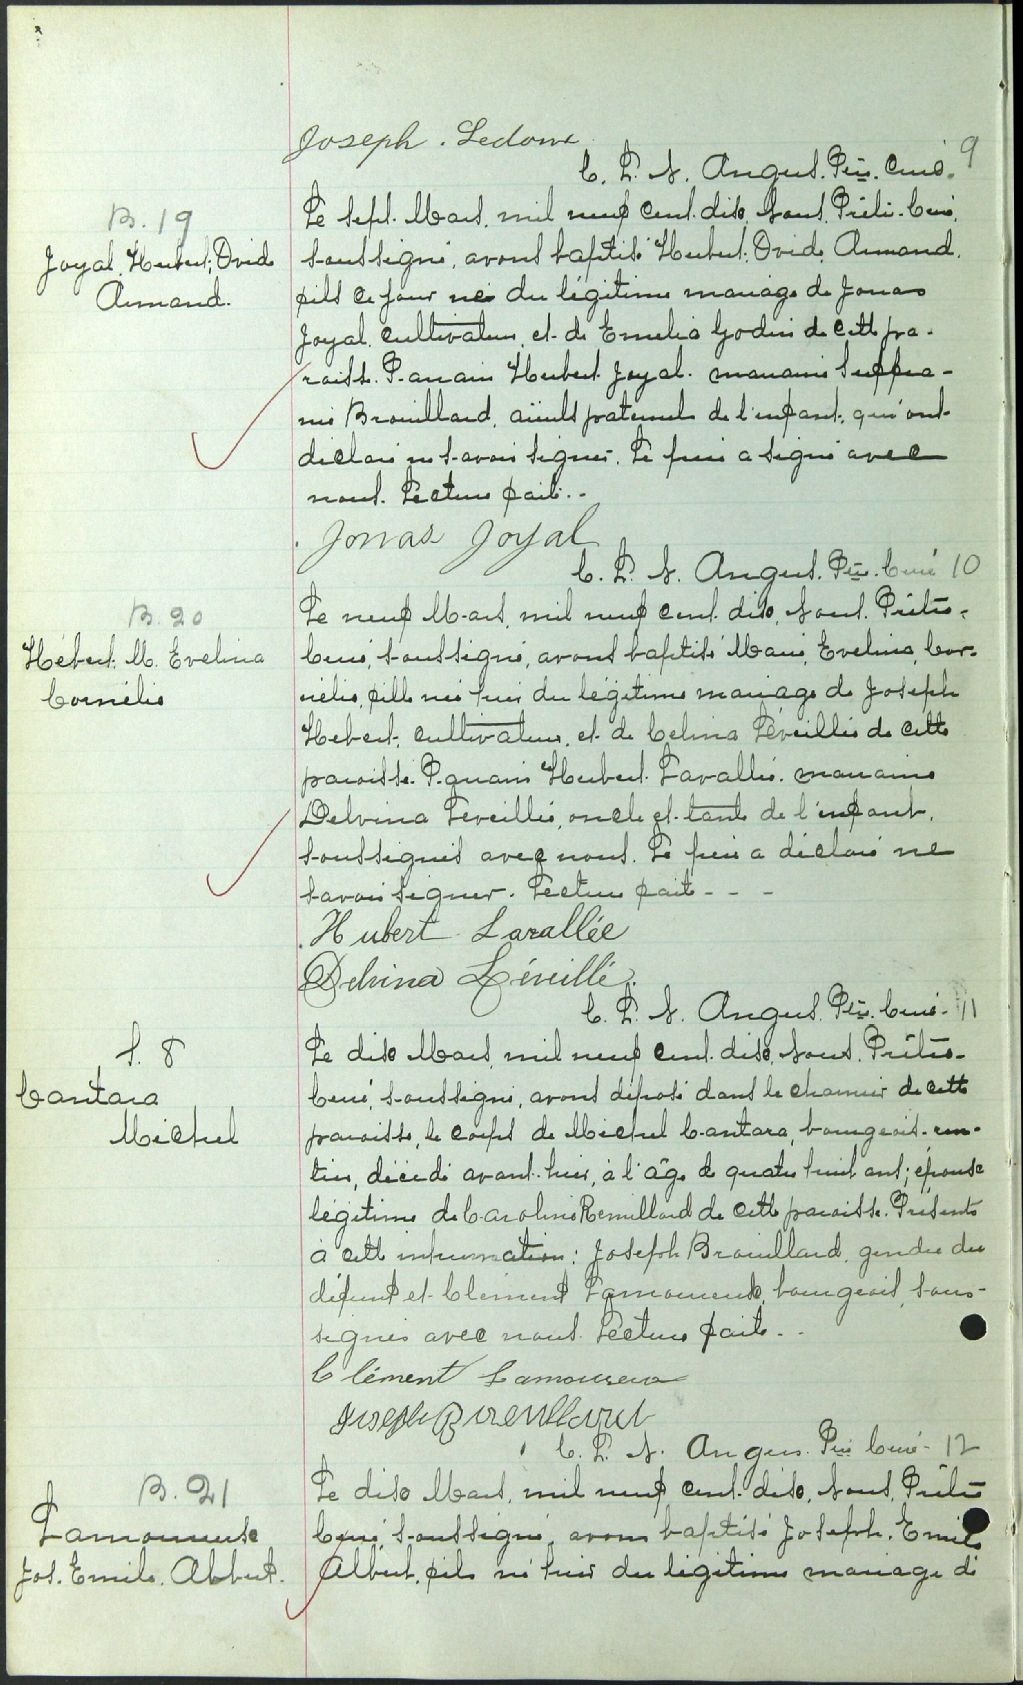 Joseph. Ledoux
C. L. A. Angus. Ptre. Curé. 9
B. 19
Joyal, Hubert, Ovide
Armand.
Le sept Mars, mil neuf cent dix, Nous, Prêtre-Curé,
soussigné, avons baptisé Hubert, Ovide, Armand,
fils ce jour né du légitime mariage de Jonas
Joyal, cultivateur, et de Emelia Godin de cette pa-
roisse. Parrain Hubert Joyal. marraine Suffra-
nie Brouillard, aïeuls paternels de l'enfant, qui ont
déclaré ne savoir signer. Le père a signé avec
nous. Lecture faite.-
Jonas Joyal
C. L. A. Angus. Ptre. Curé 10
B. 20
Hébert. M. Evelina
Cornélie
Le neuf Mars, mil neuf cent dix, Nous, Prêtre-
Curé, soussigné, avons baptisé Marie, Evelina, Cor-
nélie, fille née hier du légitime mariage de Joseph
Hebert, cultivateur, et de Celina Léveillée de cette
paroisse. Parrain Hubert Lavallée. marraine
Delvina Leveillée, oncle et tante de l'enfant,
soussignés avec nous. Le père a déclaré ne
savoir signer. Lecture faite - - -
Hubert Lavallée
Delvina Léveillé.
C. L. A. Angus. Ptre. Curé - 11
S. 8
Cantara
Michel
Le dix Mars, mil neuf cent dix, Nous, Prêtre-
Curé, soussigné, avons déposé dans le charnier de cette
paroisse, le corps de Michel Cantara, bourgeois-ren-
tier, décédé avant-hier, à l'âge de quatre huit ans; époux
légitime de Caroline Remillard de cette paroisse. Présents
à cette inhumation: Joseph Brouillard, gendre du
défunt et Clément Lamoureux, bourgeois, sous-
signés avec nous. Lecture faite. -
Clément Lamoureux
Joseph Brouillard
C. L. A. Angus. Ptre Curé - 12
B. 21
Lamoureuse
Jos. Emile. Albert.
Le dix Mars, mil neuf cent dix, Nous, Prêtre
Curé, soussigné, avons baptisé Joseph, Emile
Albert, fils né hier du légitime mariage de